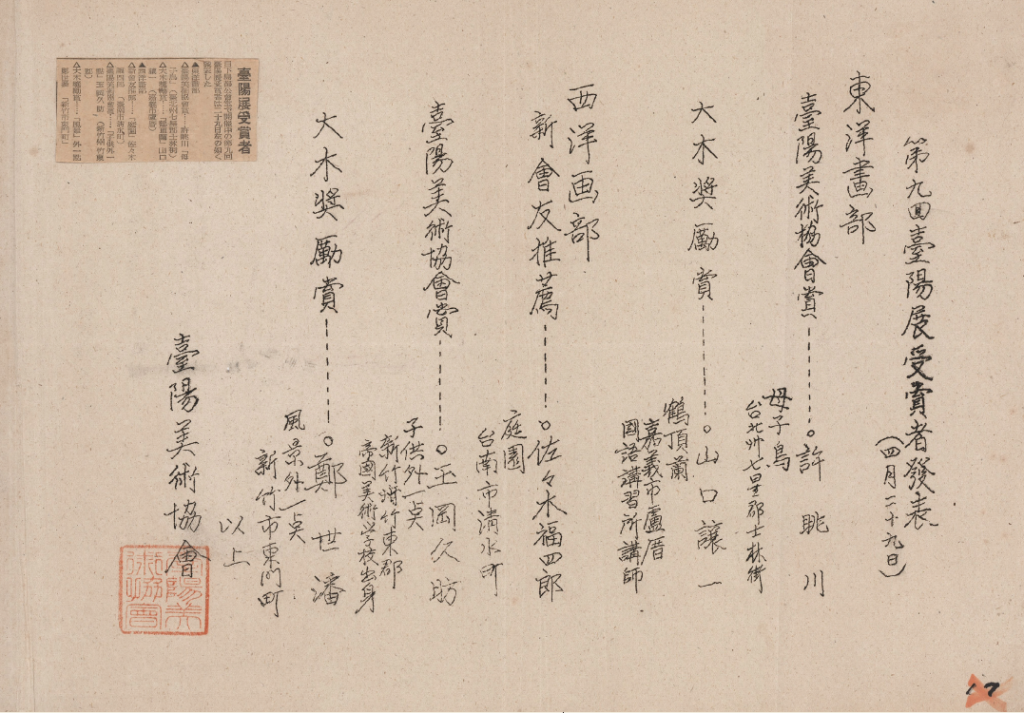 第九回臺陽展受賞者發表
(四月二十九日)
東洋畫部
臺陽美術協會賞……。許眺川
母子鳥
台北州七星郡士林街
大木奬勵賞……。山口讓一
鶴頂蘭
嘉義市盧厝
國語講習所講師
西洋画部
新會友推薦……。佐々木福四郎
庭園
台南市清水町
臺陽美術協會賞……。玉岡久防
子供外一点
新竹州竹東郡
帝國美術学校出身
大木奬勵賞……。鄭世璠
風景外一点
新竹市東門町
以上
臺陽美術協會
臺陽美術協會
臺陽展受賞者
17